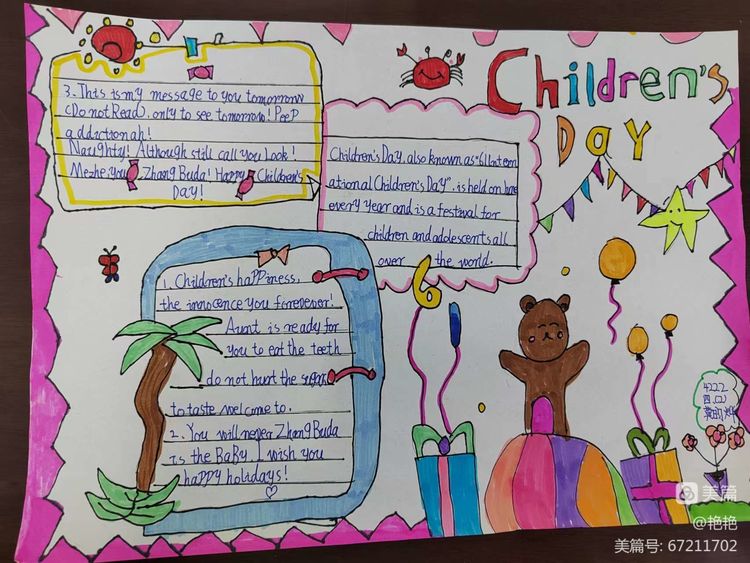 Children's
DAY
3. This is my message to you tomorrow
(Do not Read), only to see tomorrow! PeeP
addictionah!
Naughty! Although still call you Look!
Me-he you Zhang Buda! Happy Children's
DAY!
Children's Day, also known as "61 Intern
ational Children's Day". is held on June
every year and is a festival for
children and adolescents all
over the world.
1. Children's happiness,
the innocence you forever!
Aunt is ready for
you to eat the teeth
do not hurt the sugar,
to taste welcome to.
2. You will never Zhang Buda
Is the BaBy I wish you
happy holidays!
61
4222
四.(2)
美篇
@艳艳
美篇号: 67211702